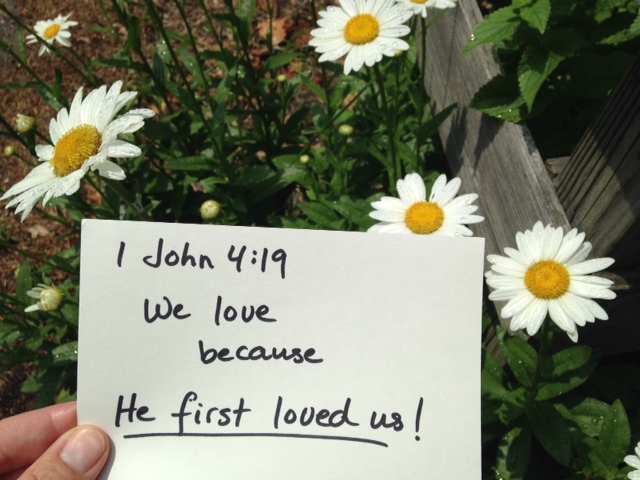 1 John 4:19
We love
because
He first loved us!